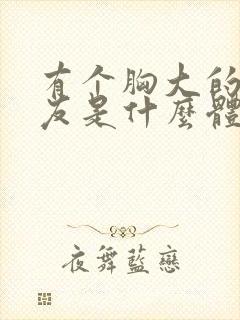 有个胸大的
友是什麼體
夜舞藍戀